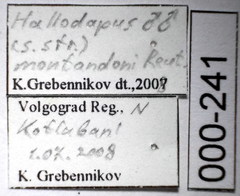 Hallodapus ♂♂
(s. str.)
montandoni Reut.
K.Grebennikov dt.,2008
Volgograd Reg., N
Kotlubani
1.07.2008
K. Grebennikov
000-241